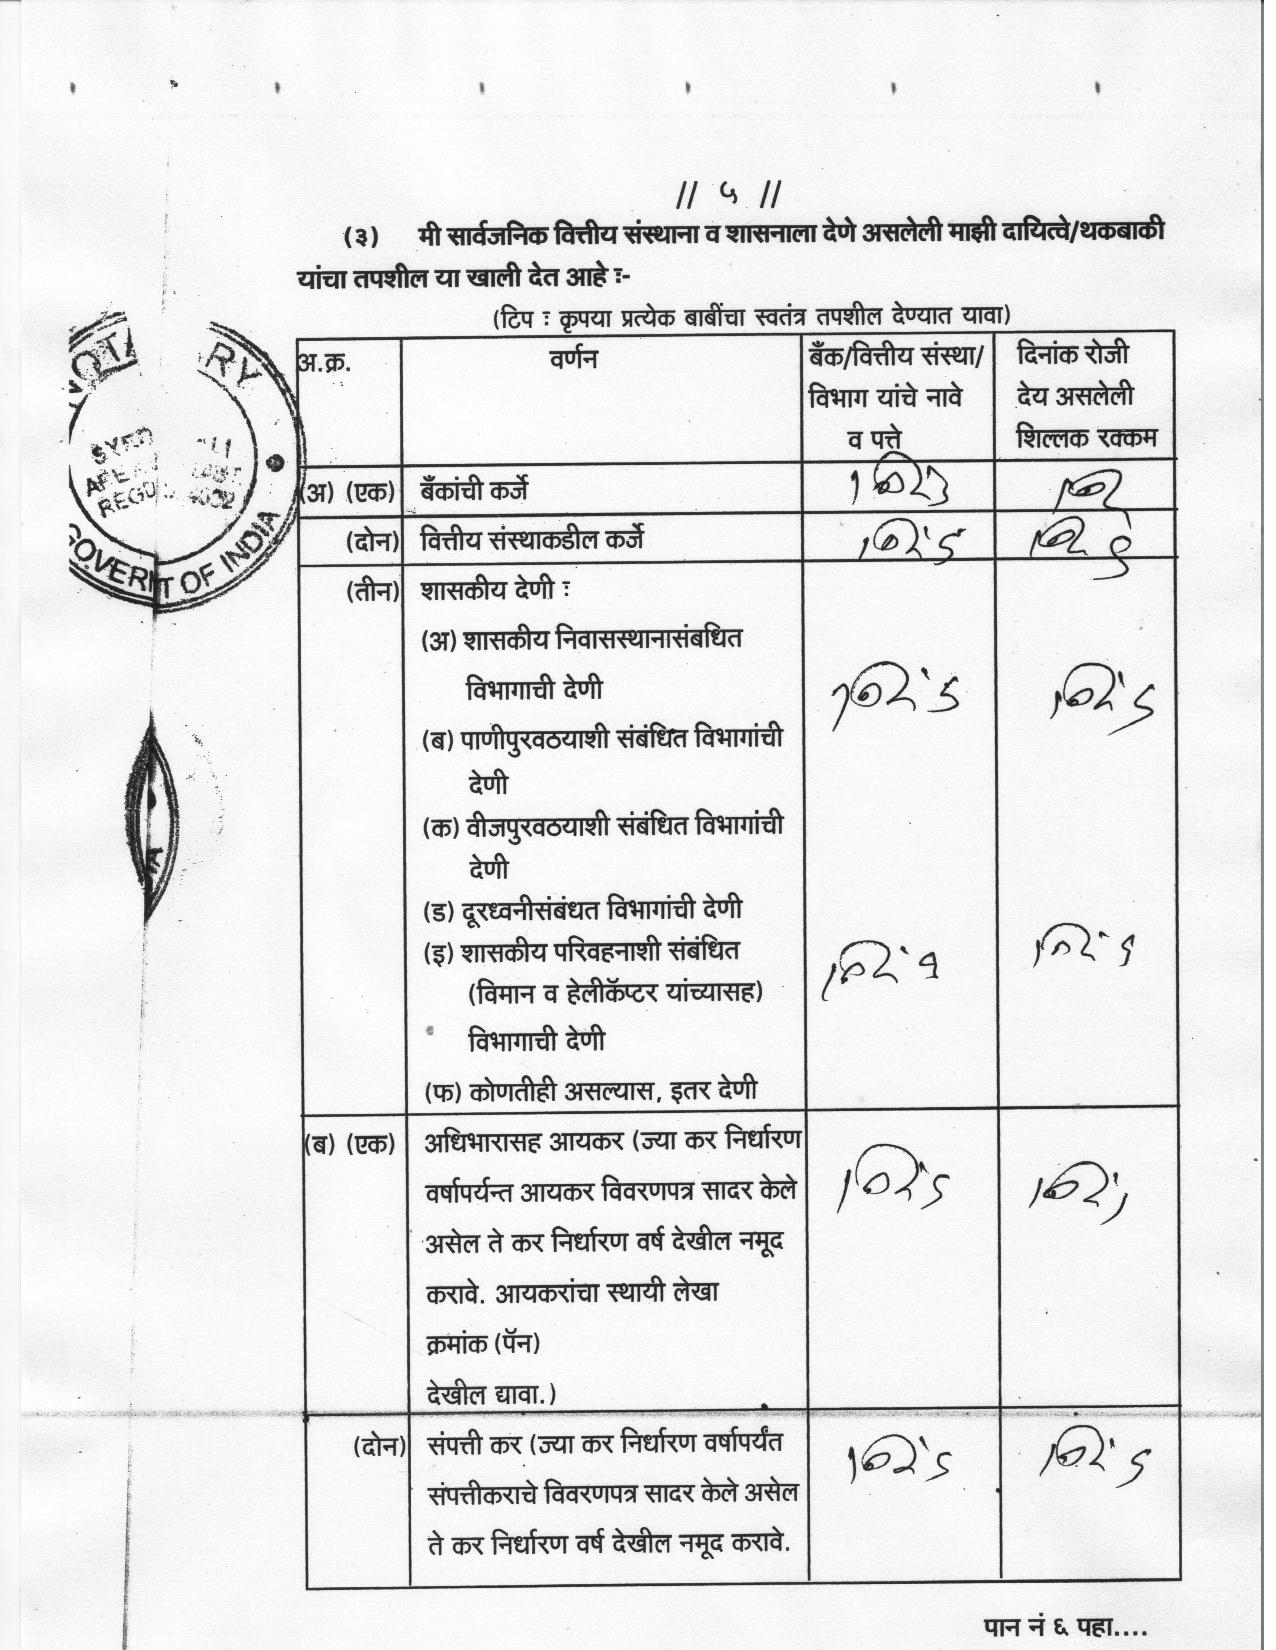 // ५ //
(३) मी सार्वजनिक वित्तीय संस्थाना व शासनाला देणे असलेली माझी दायित्वे/थकबाकी
यांचा तपशील या खाली देत आहे ः-
(टिप ः कृपया प्रत्येक बाबींचा स्वतंत्र तपशील देण्यात यावा)
अ.क्र. वर्णन बँक/वित्तीय संस्था/ दिनांक रोजी
विभाग यांचे नावे देय असलेली
व पत्ते शिल्लक रक्कम
(अ) (एक) बँकांची कर्जे
(दोन) वित्तीय संस्थाकडील कर्जे
(तीन) शासकीय देणी ः
(अ) शासकीय निवासस्थानासंबधित
विभागाची देणी
(ब) पाणीपुरवठयाशी संबंधित विभागांची
देणी
(क) वीजपुरवठयाशी संबंधित विभागांची
देणी
(ड) दूरध्वनीसंबंधत विभागांची देणी
(इ) शासकीय परिवहनाशी संबंधित
(विमान व हेलीकॅप्टर यांच्यासह)
विभागाची देणी
(फ) कोणतीही असल्यास, इतर देणी
(ब) (एक) अधिभारासह आयकर (ज्या कर निर्धारण
वर्षापर्यन्त आयकर विवरणपत्र सादर केले
असेल ते कर निर्धारण वर्ष देखील नमूद
करावे. आयकरांचा स्थायी लेखा
क्रमांक (पॅन)
देखील द्यावा.)
(दोन) संपत्ती कर (ज्या कर निर्धारण वर्षापर्यंत
संपत्तीकराचे विवरणपत्र सादर केले असेल
ते कर निर्धारण वर्ष देखील नमूद करावे.
पान नं ६ पहा....
OF INDIA